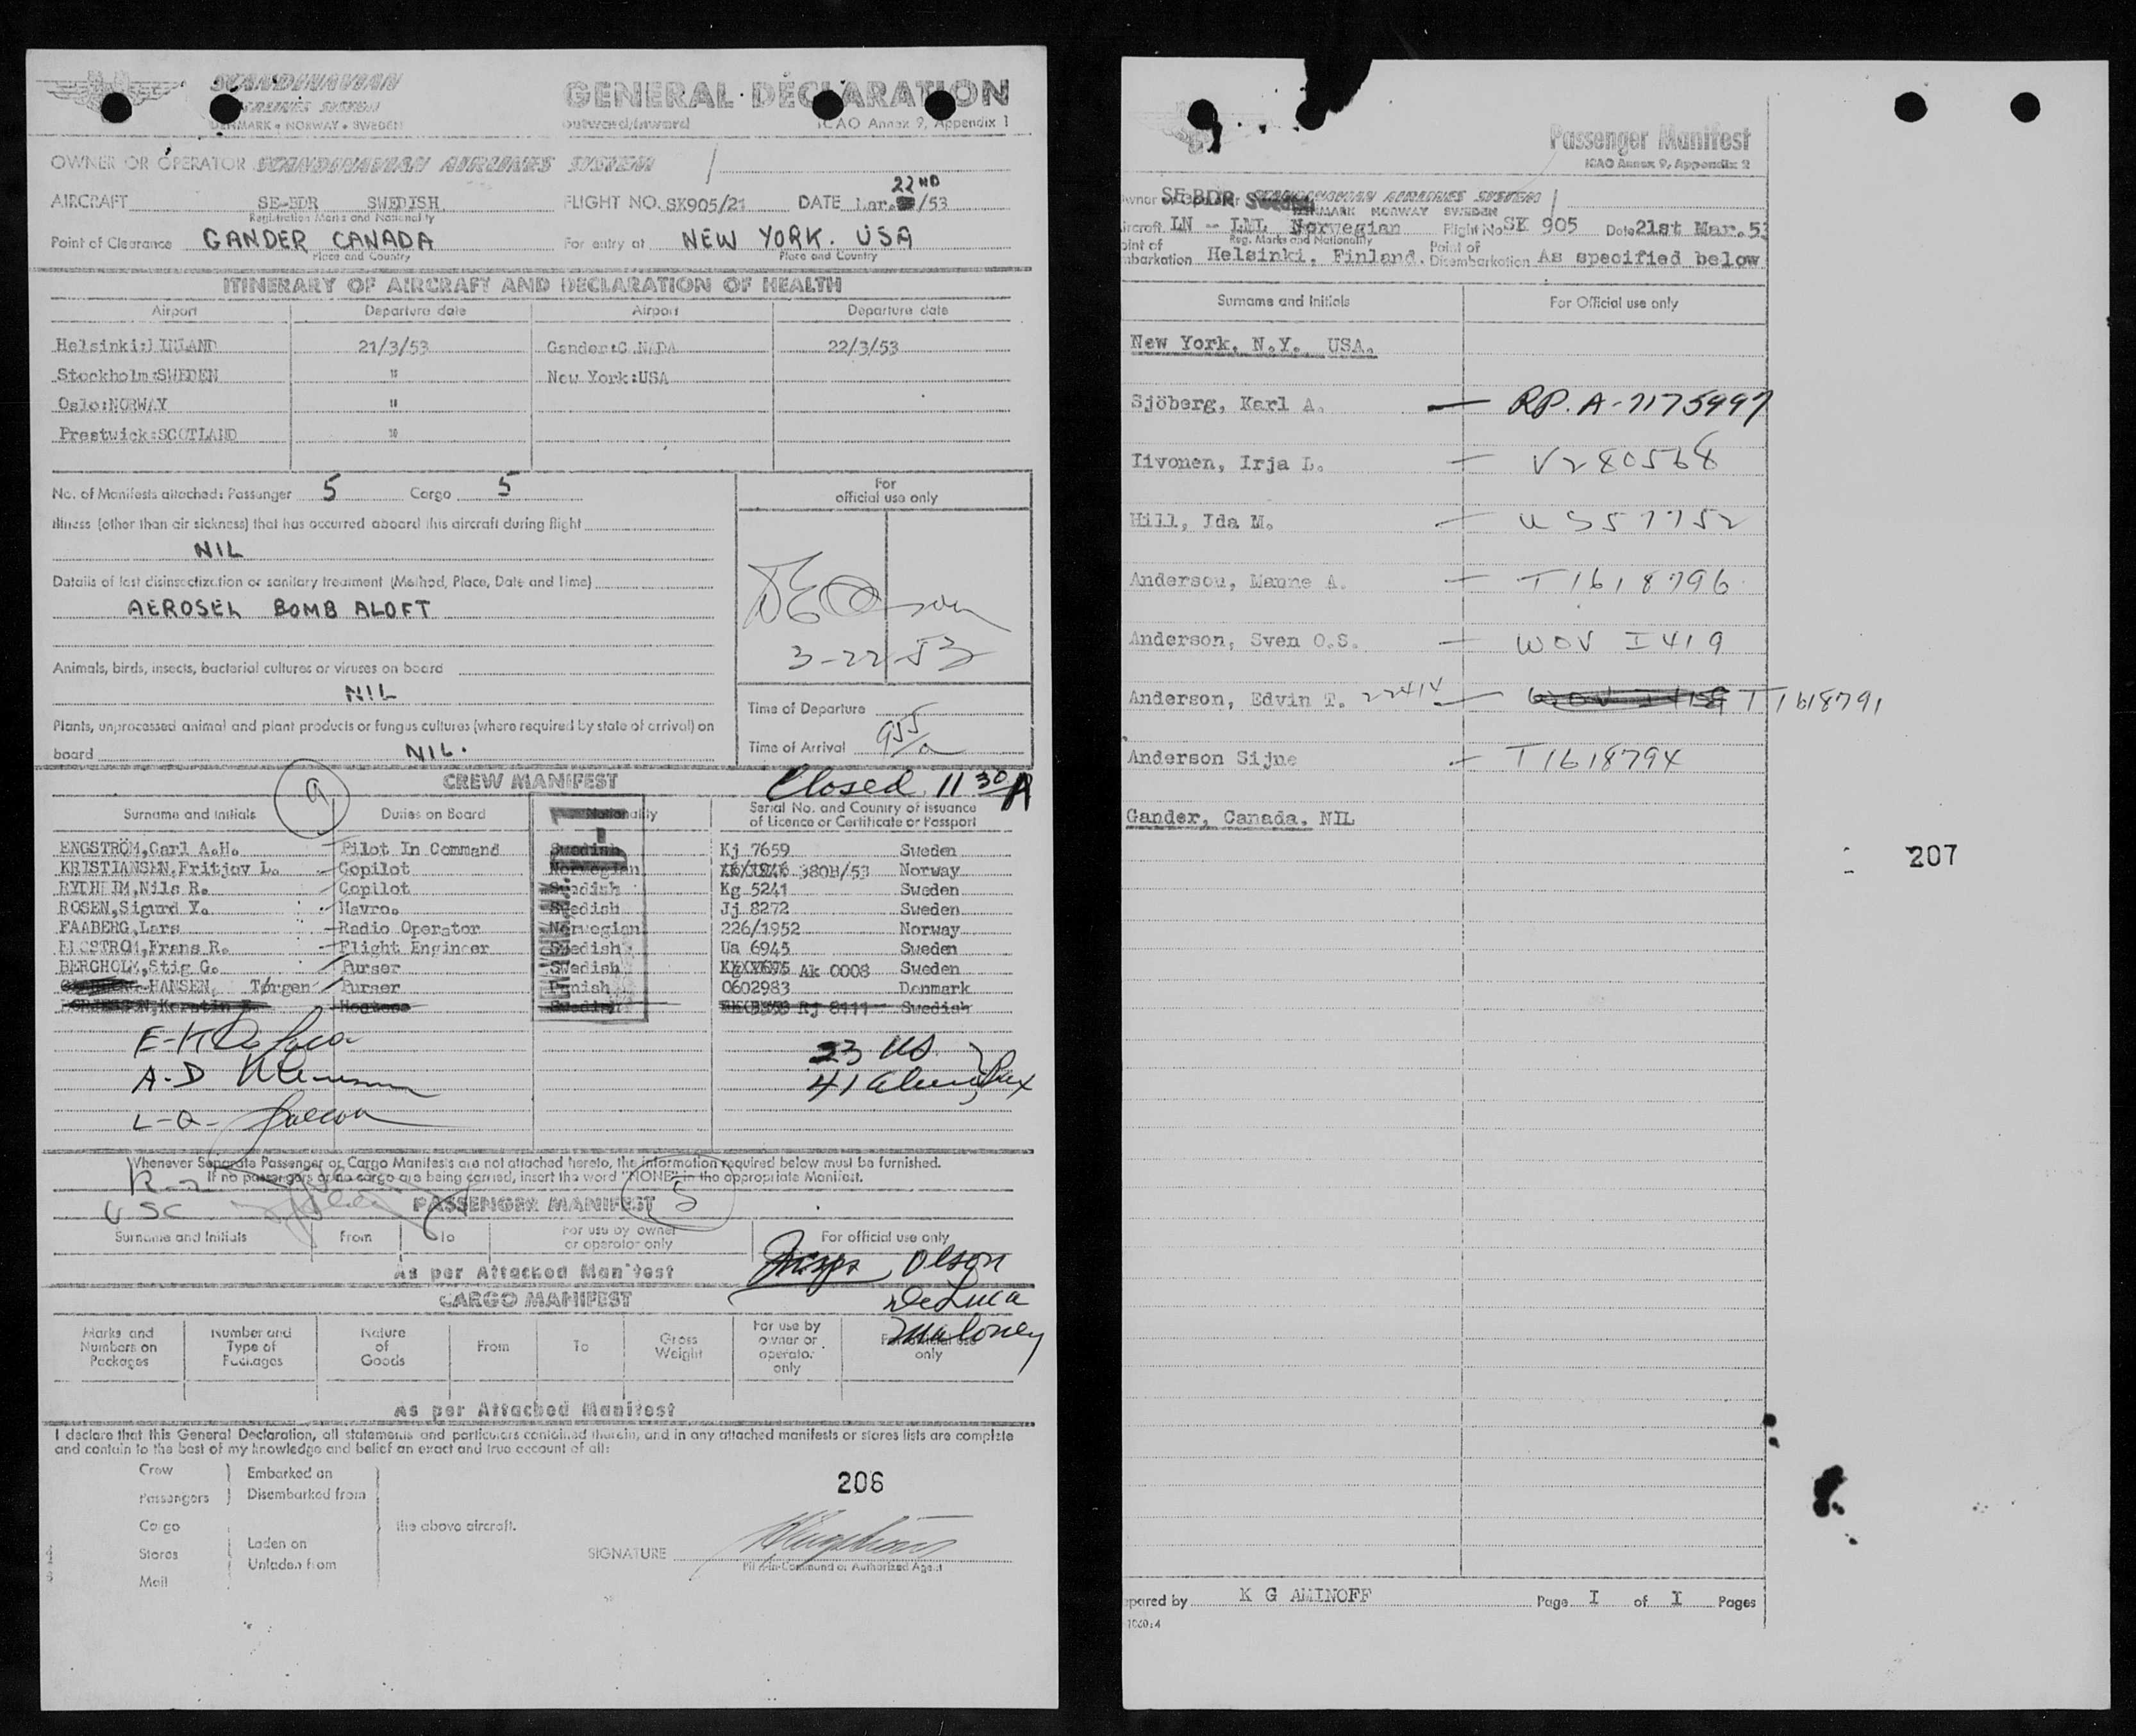 SCANDINAVIAN
AIRLINES SYSTEM
DENMARK • NORWAY • SWEDEN
GENERAL DECLARATION
outward/inward ICAO Annex 9, Appendix 1
OWNER OR OPERATOR SCANDINAVIAN AIRLINES SYSTEM
22ND
AIRCRAFT SE-BDR SWEDISH FLIGHT NO. SK905/21 DATE Mar. /53
Registration Marks and Nationality
Point of Clearance GANDER CANADA For entry at NEW YORK. USA
Place and Country Place and Country
ITINERARY OF AIRCRAFT AND DECLARATION OF HEALTH
Airport Departure date Airport Departure date
Helsinki:FINLAND 21/3/53 Gander:CANADA 22/3/53
Stockholm:SWEDEN " New York:USA
Oslo:NORWAY "
Prestwick:SCOTLAND "
No. of Manifests attached: Passenger 5 Cargo 5
For
official use only
Illness (other than air sickness) that has occurred aboard this aircraft during flight
NIL
Details of last disinsectization or sanitary treatment (Method, Place, Date and Time)
AEROSEL BOMB ALOFT
3-22-53
Animals, birds, insects, bacterial cultures or viruses on board
NIL
Plants, unprocessed animal and plant products or fungus cultures (where required by state of arrival) on
board NIL.
Time of Departure
Time of Arrival 955/a
CREW MANIFEST
9
Closed 11 30 A
Surname and Initials Duties on Board Nationality Serial No. and Country of issuance
of Licence or Certificate or Passport
ENGSTRÖM,Carl A.H. Pilot In Command Swedish Kj 7659 Sweden
KRISTIANSEN,Fritjov L. Copilot Norwegian 380B/53 Norway
RYDHEIM,Nils R. Copilot Swedish Kg 5241 Sweden
ROSEN,Sigurd Y. Navro. Swedish Jj 8272 Sweden
FAABERG,Lars Radio Operator Norwegian 226/1952 Norway
ELGSTROM,Frans R. Flight Engineer Swedish Ua 6945 Sweden
BERGHOLM,Stig G. Purser Swedish Ak 0008 Sweden
HANSEN, Tørgen Purser Danish 0602983 Denmark
Hostess Swedish Rj 8111 Swedish
E-H DeLuca
A-D
L-Q-
23 US
41 aliens Pax
Whenever Separate Passenger or Cargo Manifests are not attached hereto, the information required below must be furnished.
If no passengers or no cargo are being carried, insert the word "NONE" in the appropriate Manifest.
R-Z
USC
PASSENGER MANIFEST
5
Surname and Initials From To For use by owner
or operator only For official use only
As per Attached Manifest
Olson
DeLuca
Maloney
CARGO MANIFEST
Marks and
Numbers on
Packages Number and
Type of
Packages Nature
of
Goods From To Gross
Weight For use by
owner or
operator
only For official use
only
As per Attached Manifest
I declare that this General Declaration, all statements and particulars contained therein, and in any attached manifests or stores lists are complete
and contain to the best of my knowledge and belief an exact and true account of all:
Crew Embarked on
Passengers Disembarked from
Cargo the above aircraft.
Stores Laden on
Mail Unladen from
206
SIGNATURE
Pilot-in-Command or Authorized Agent
Passenger Manifest
ICAO Annex 9, Appendix 2
SE-BDR Swedish SCANDINAVIAN AIRLINES SYSTEM
DENMARK NORWAY SWEDEN
ircraft LN -- LML Norwegian Flight No SK 905 Date 21st Mar.53
Reg. Marks and Nationality
oint of
mbarkation Helsinki, Finland. Point of
Disembarkation As specified below
Surname and Initials For Official use only
New York, N.Y. USA.
Sjöberg, Karl A. — RP. A-7175997
Iivonen, Irja L. — V280568
Hill, Ida M. — US57752
Anderson, Manne A. — T1618796
Anderson, Sven O.S. — WOV I419
Anderson, Edvin T. 22414 — T1618791
Anderson Sijne — T1618794
Gander, Canada. NIL
207
epared by K G AMINOFF Page I of I Pages